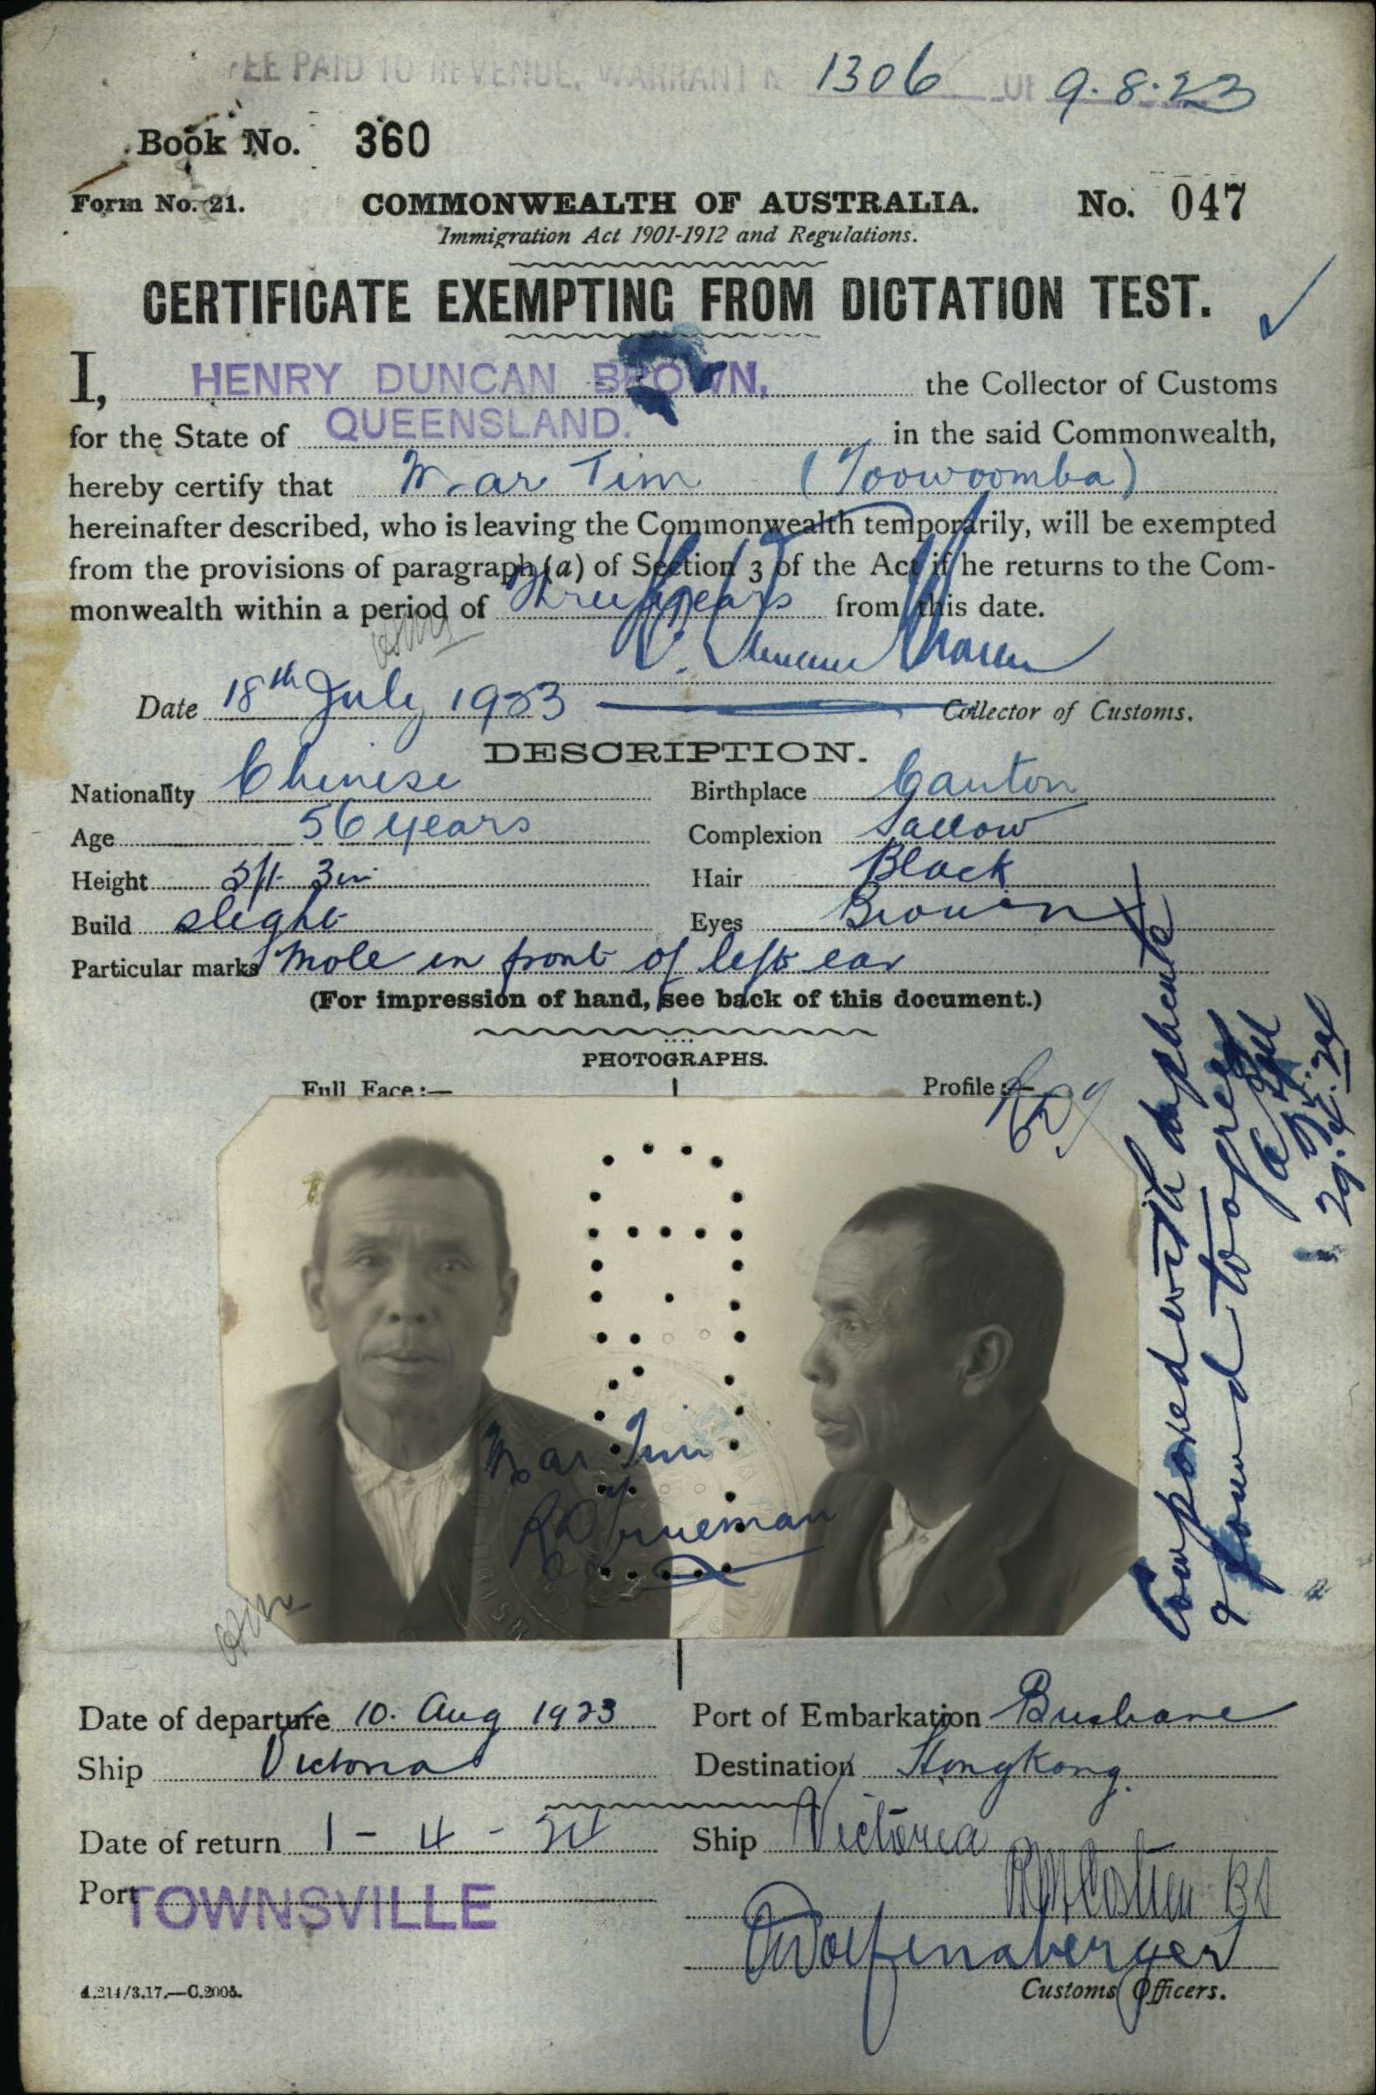 FEE PAID TO REVENUE, WARRANT N 1306 OF 9.8.23
Book No. 360
Form No. 21. COMMONWEALTH OF AUSTRALIA. No. 047
Immigration Act 1901-1912 and Regulations.
CERTIFICATE EXEMPTING FROM DICTATION TEST.
I, HENRY DUNCAN BROWN, the Collector of Customs
for the State of QUEENSLAND. in the said Commonwealth,
hereby certify that Mar Tim (Toowoomba)
hereinafter described, who is leaving the Commonwealth temporarily, will be exempted
from the provisions of paragraph (a) of Section 3 of the Act if he returns to the Com-
monwealth within a period of Three years from this date.
Date 18th July 1923 Collector of Customs.
DESCRIPTION.
Nationality Chinese Birthplace Canton
Age 56 years Complexion Sallow
Height 5ft 3in Hair Black
Build slight Eyes Brown
Particular marks Mole in front of left ear
(For impression of hand, see back of this document.)
PHOTOGRAPHS.
Full Face:— Profile:—
Mar Tim
Compared with duplicate
& found to agree
29.4.24
Date of departure 10. Aug 1923 Port of Embarkation Brisbane
Ship Victoria Destination Hongkong.
Date of return 1-4-24 Ship Victoria
Port TOWNSVILLE
Customs Officers.